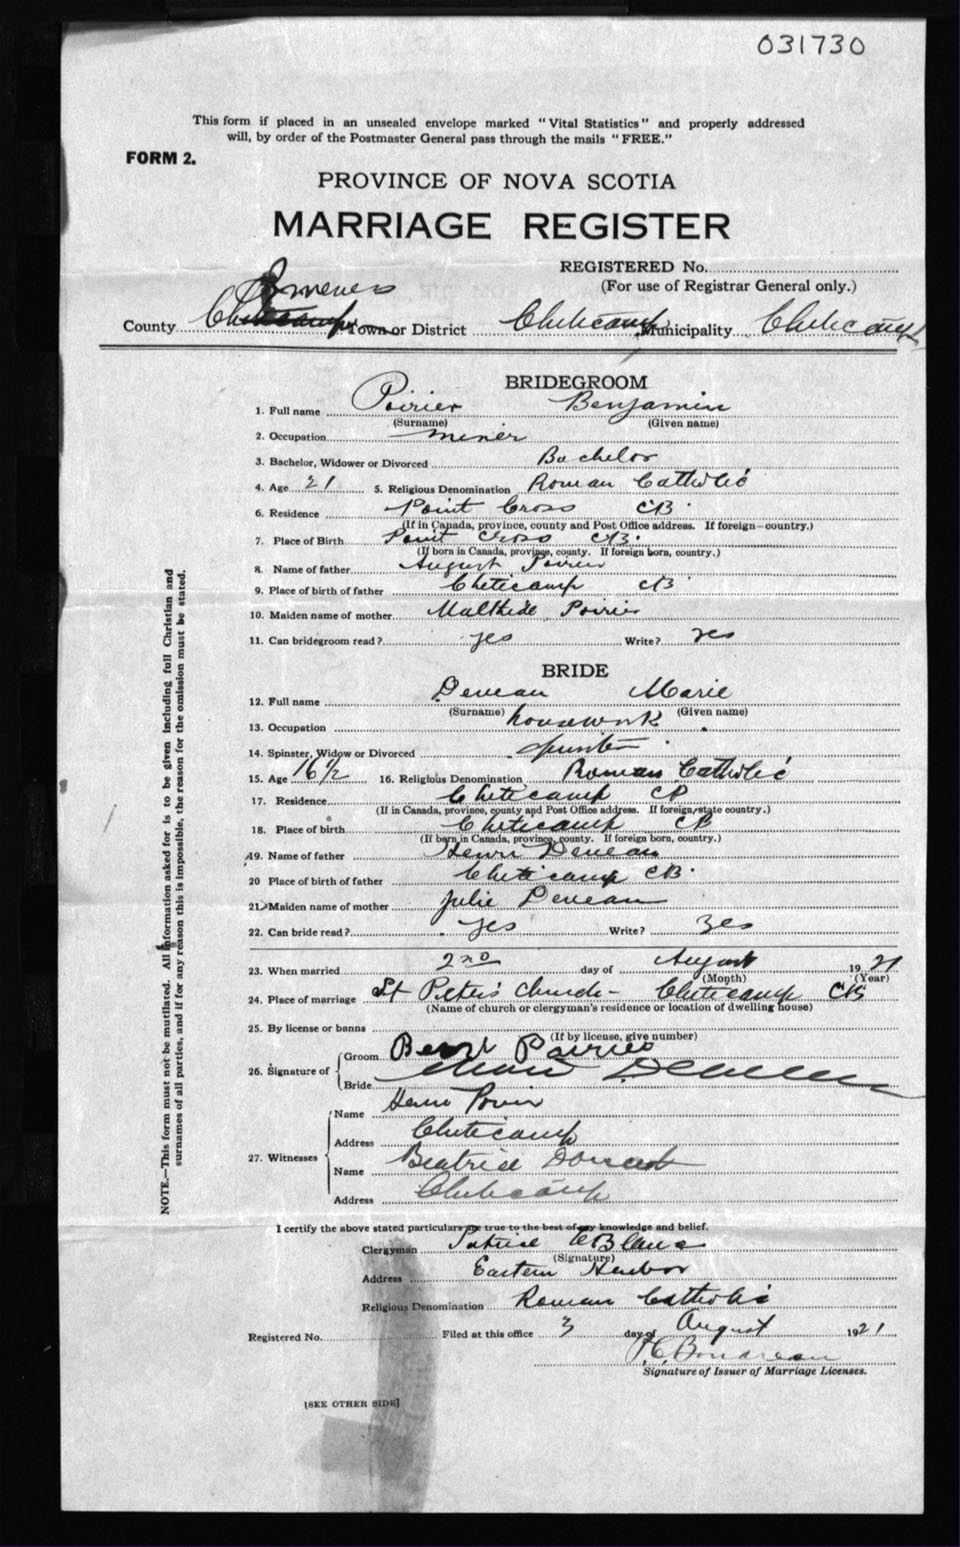 031730
This form if placed in an unsealed envelope marked "Vital Statistics" and properly addressed
will, by order of the Postmaster General pass through the mails "FREE."
FORM 2.
PROVINCE OF NOVA SCOTIA
MARRIAGE REGISTER
REGISTERED No.
(For use of Registrar General only.)
County Cheticamp Town or District Cheticamp Municipality Cheticamp
BRIDEGROOM
1. Full name Poirier Benjamin
(Surname) (Given name)
2. Occupation miner
3. Bachelor, Widower or Divorced Bachelor
4. Age 21 5. Religious Denomination Roman Catholic
6. Residence Point Cross CB
(If in Canada, province, county and Post Office address. If foreign—country.)
7. Place of Birth Point Cross CB.
(If born in Canada, province, county. If foreign born, country.)
8. Name of father August Poirier
9. Place of birth of father Cheticamp CB
10. Maiden name of mother Mathide Poirier
11. Can bridegroom read? yes Write? yes
BRIDE
12. Full name Deveau Marie
(Surname) (Given name)
13. Occupation housework
14. Spinster, Widow or Divorced spinster
15. Age 16 1/2 16. Religious Denomination Roman Catholic
17. Residence Cheticamp CB
(If in Canada, province, county and Post Office address. If foreign, state country.)
18. Place of birth Cheticamp CB
(If born in Canada, province, county. If foreign born, country.)
19. Name of father Henri Deveau
20 Place of birth of father Cheticamp CB.
21. Maiden name of mother Julie Deveau
22. Can bride read? yes Write? yes
23. When married 2nd day of August 1921
(Month) (Year)
24. Place of marriage St Peter's Church - Cheticamp CB
(Name of church or clergyman's residence or location of dwelling house)
25. By license or banns
(If by license, give number)
26. Signature of
Groom Poirier
Bride Marie Deveau
27. Witnesses
Name Henri
Address Cheticamp
Name Beatrice
Address Cheticamp
I certify the above stated particulars are true to the best of my knowledge and belief.
Clergyman Patrice LeBlanc
(Signature)
Address Eastern Harbor
Religious Denomination Roman Catholic
Registered No. Filed at this office 3 day of August 1921
Signature of Issuer of Marriage Licenses.
[SEE OTHER SIDE]
NOTE.—This form must not be mutilated. All information asked for is to be given including full Christian and
surnames of all parties, and if for any reason this is impossible, the reason for the omission must be stated.